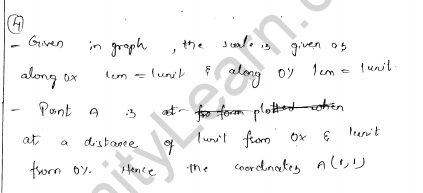 4
- Given in graph, the scale is given as
along ox 1cm = 1unit & along oy 1cm = 1unit.
- Point A is at
at a distance of 1unit from ox & 1unit
from oy. Hence the coordinates A(1,1)
nityLearn.c